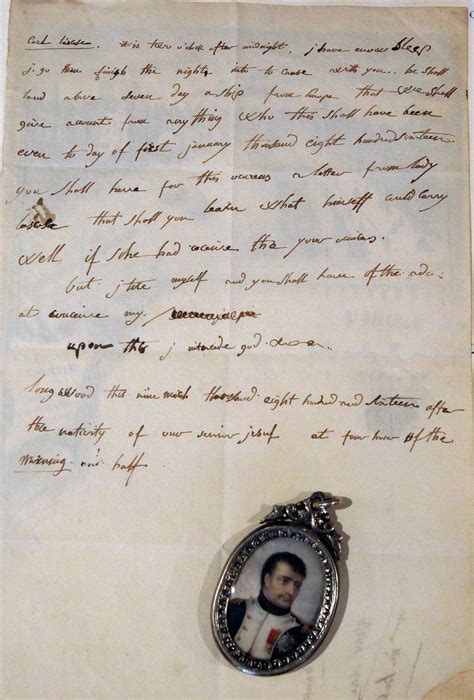 Lascase. it is two o'clock after midnight, j have enow sleep
j go then finish the night into to cause with you.. he shall
land above seven day a ship from Europe that we shall
give account from anything who this shall have been
even to day of first january thousand eight hundred sixteen.
you shall have for this ocurens a letter from lady
lascase that shall you learn what himself could carry
well if she had conceive the your
but j tire myself and you shall have of the ado
at conceive my
upon this j intercede god
longwood this nine march thousand eight hundred and sixteen after
the nativity of our savior jesus at four hour of the
morning and half